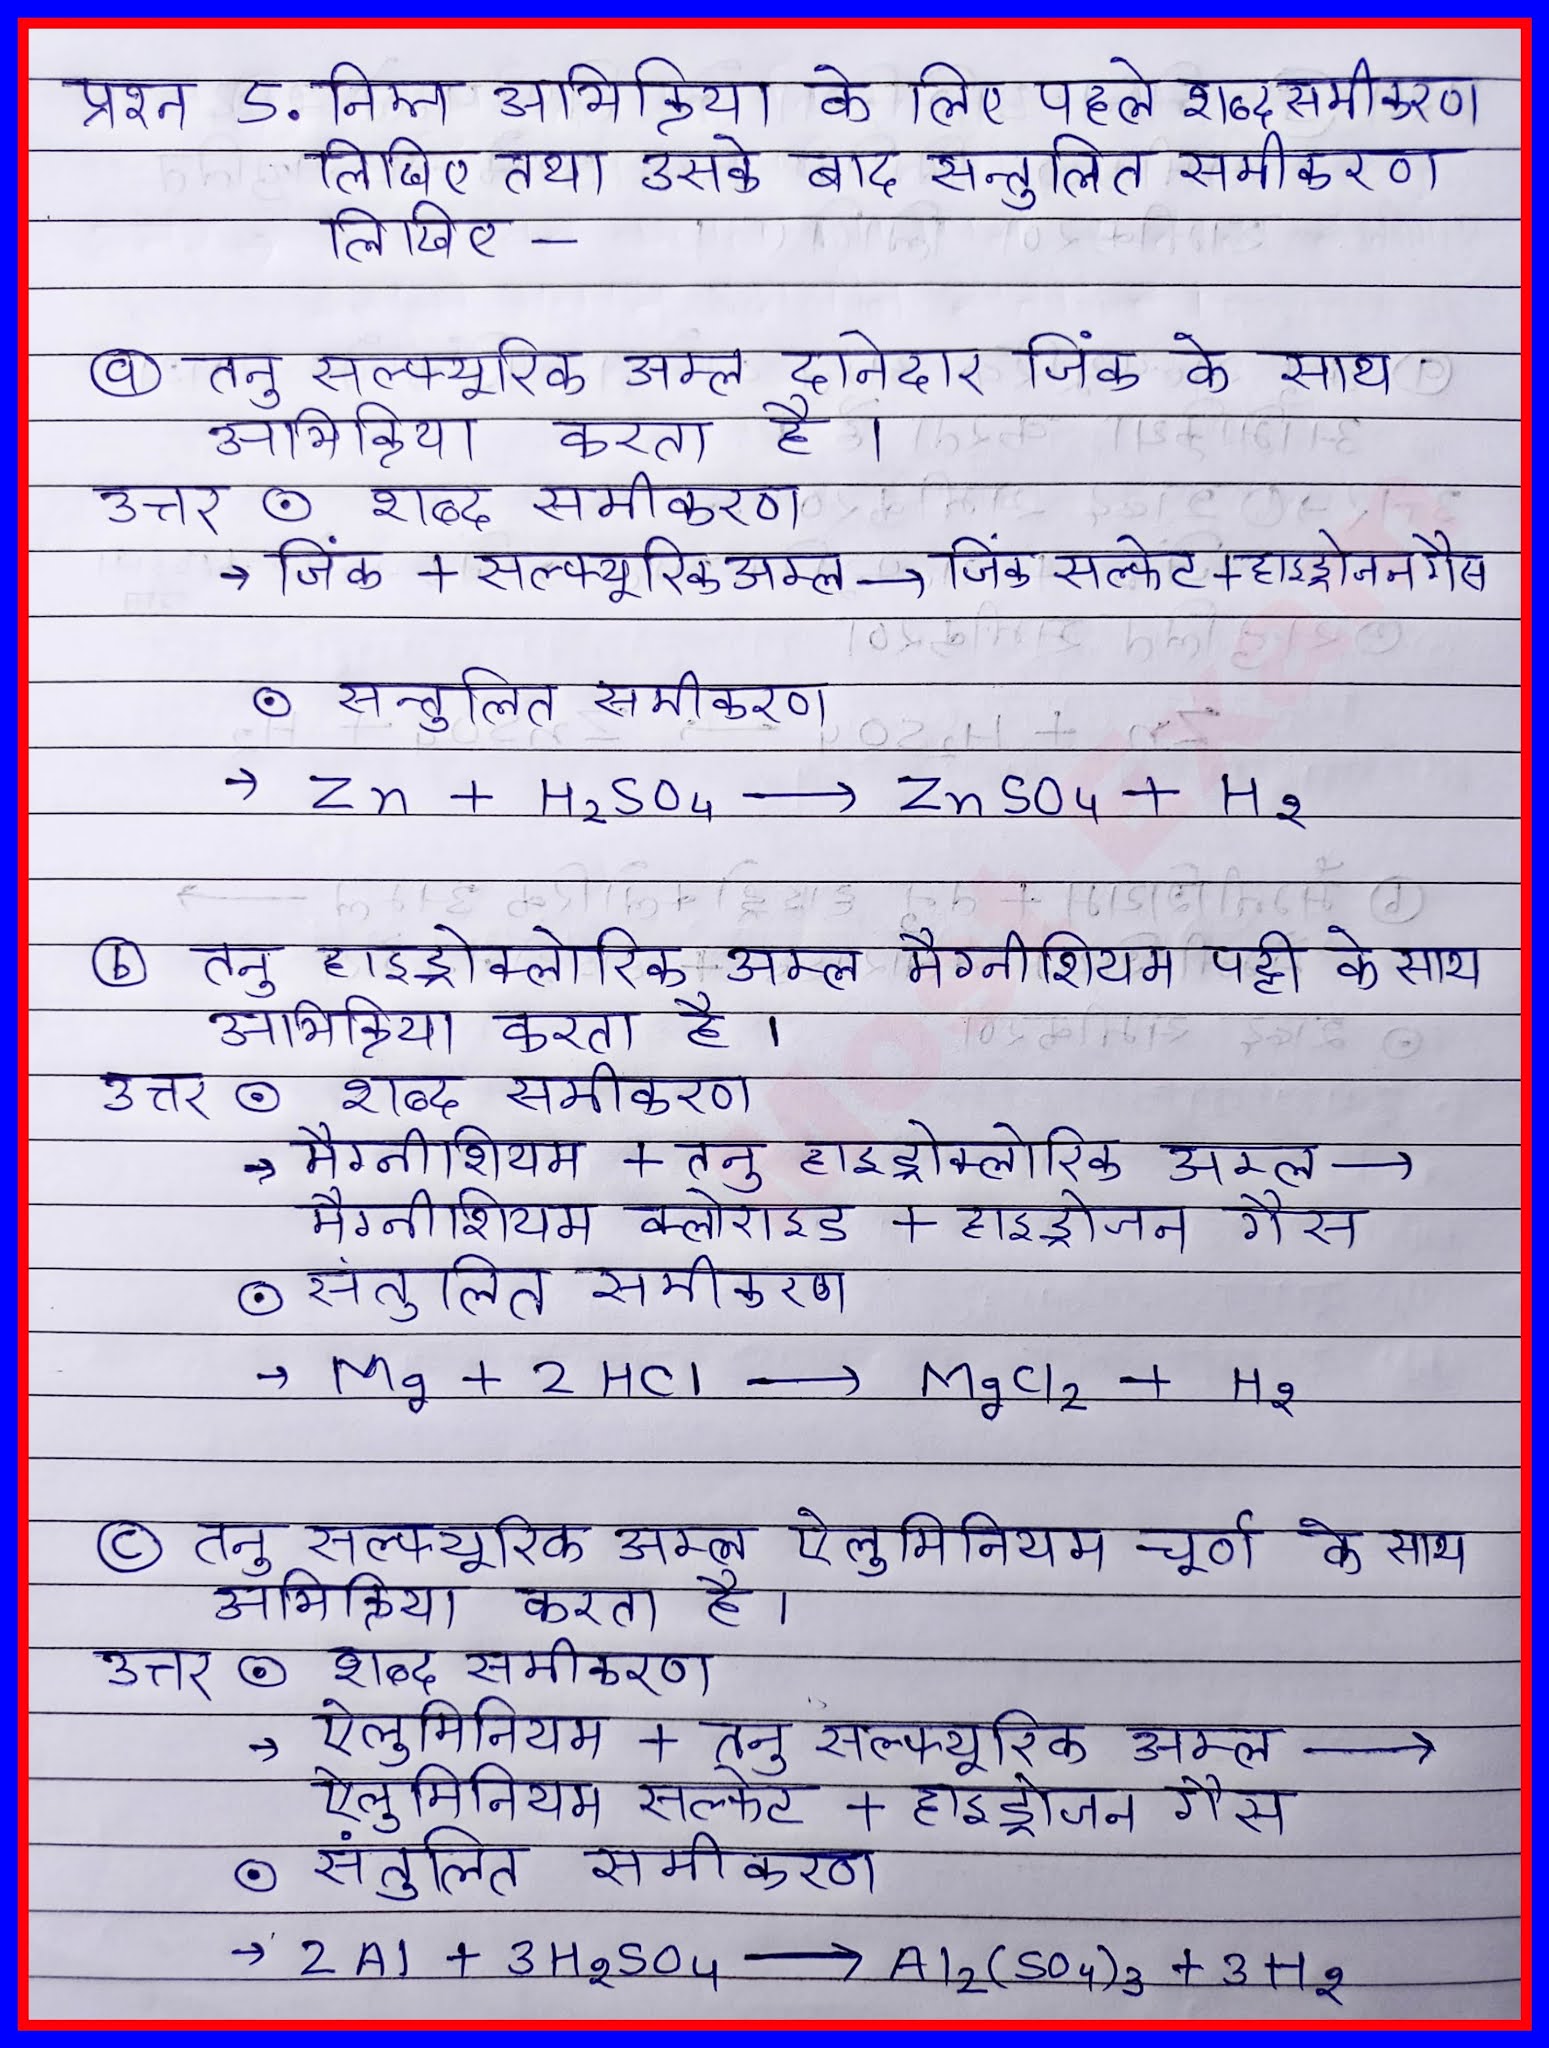 प्रश्न 5. निम्न अभिक्रिया के लिए पहले शब्द समीकरण
लिखिए तथा उसके बाद सन्तुलित समीकरण
लिखिए –
ⓐ तनु सल्फ्यूरिक अम्ल दानेदार जिंक के साथ
अभिक्रिया करता है।
उत्तर ⊙ शब्द समीकरण
→ जिंक + सल्फ्यूरिक अम्ल → जिंक सल्फेट + हाइड्रोजन गैस
⊙ सन्तुलित समीकरण
→ Zn + H₂SO₄ ⟶ ZnSO₄ + H₂
ⓑ तनु हाइड्रोक्लोरिक अम्ल मैग्नीशियम पट्टी के साथ
अभिक्रिया करता है।
उत्तर ⊙ शब्द समीकरण
→ मैग्नीशियम + तनु हाइड्रोक्लोरिक अम्ल →
मैग्नीशियम क्लोराइड + हाइड्रोजन गैस
⊙ संतुलित समीकरण
→ Mg + 2HCl ⟶ MgCl₂ + H₂
ⓒ तनु सल्फ्यूरिक अम्ल ऐलुमिनियम चूर्ण के साथ
अभिक्रिया करता है।
उत्तर ⊙ शब्द समीकरण
→ ऐलुमिनियम + तनु सल्फ्यूरिक अम्ल ⟶
ऐलुमिनियम सल्फेट + हाइड्रोजन गैस
⊙ संतुलित समीकरण
→ 2Al + 3H₂SO₄ ⟶ Al₂(SO₄)₃ + 3H₂